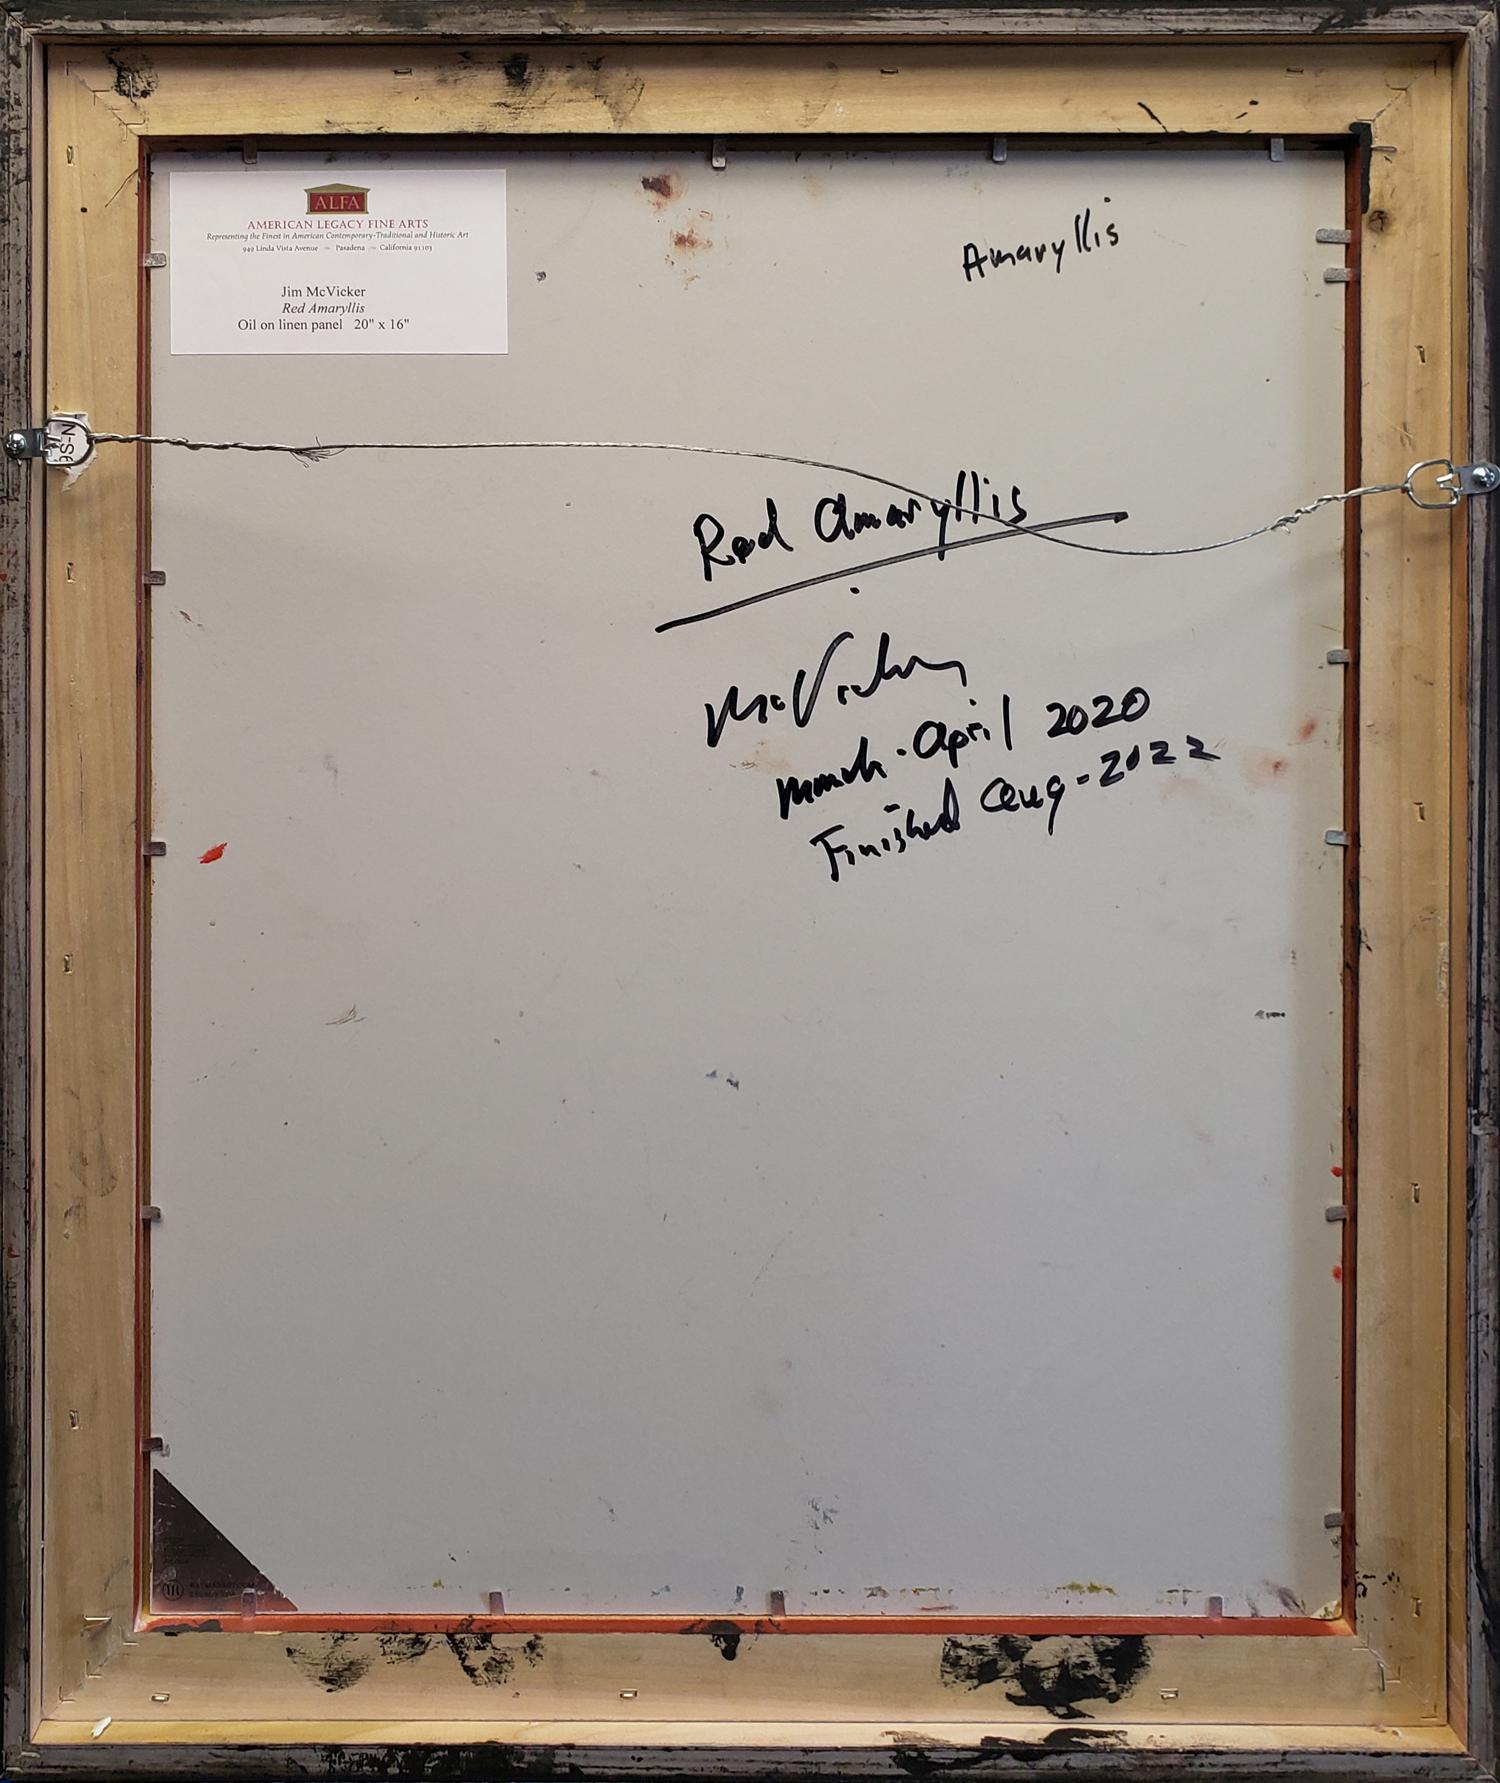 ALFA
AMERICAN LEGACY FINE ARTS
Representing the Finest in American Contemporary-Traditional and Historic Art
949 Linda Vista Avenue ~ Pasadena ~ California 91103
Jim McVicker
Red Amaryllis
Oil on linen panel 20" x 16"
Amaryllis
N-S6
Red Amaryllis
McVicker
March - April 2020
Finished Aug - 2022